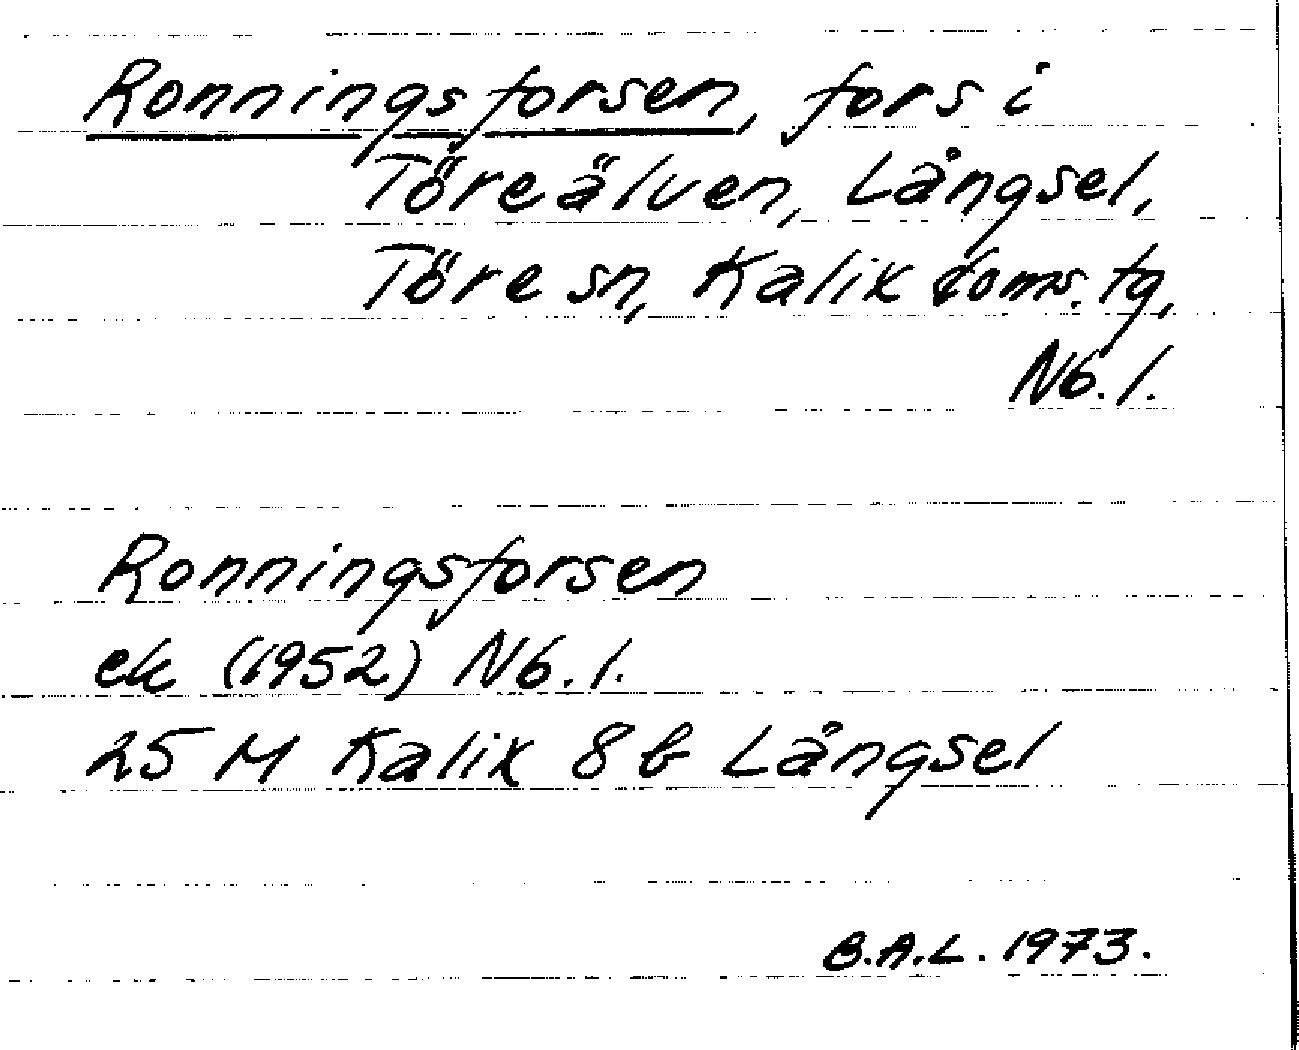 Ronningsforsen, fors i
Töreälven, Långsel,
Töre sn, Kalix doms. tg,
Nb. l.
Ronningsforsen
ek (1952) Nb. l.
25 M Kalix 8 b Långsel
B.A.L. 1973.